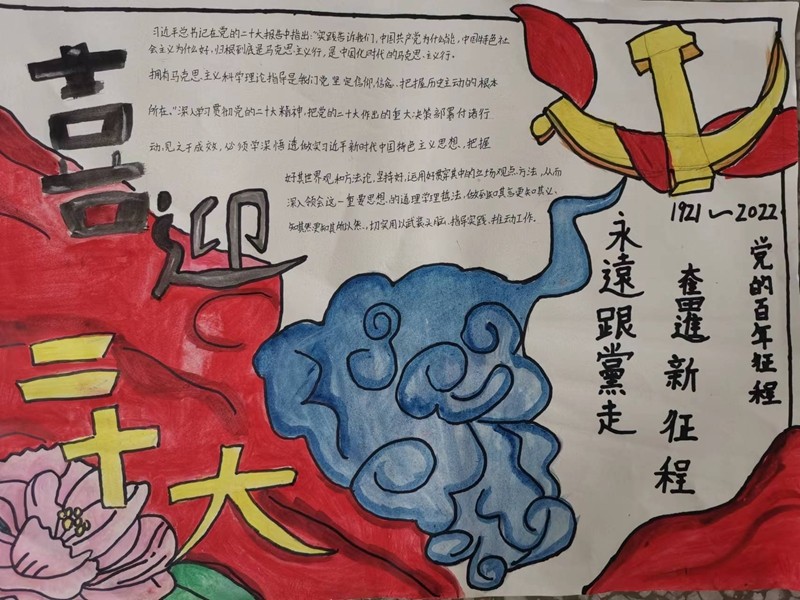 习近平总书记在党的二十大报告中指出:“实践告诉我们,中国共产党为什么能,中国特色社
会主义为什么好,归根到底是马克思主义行,是中国化时代的马克思主义行。
拥有马克思主义科学理论指导是我们党坚定信仰信念、把握历史主动的根本
所在。”深入学习贯彻党的二十大精神,把党的二十大作出的重大决策部署付诸行
动、见之于成效,必须学深悟透做实习近平新时代中国特色主义思想,把握
好其世界观和方法论,坚持好、运用好贯穿其中的立场观点方法,从而
深入领会这一重要思想的道理学理哲法,做到知其言更知其义、
知其然更知其所以然,切实用以武装头脑、指导实践、推动工作。
喜迎
二十大
1921~2022
党的百年征程
奮進新征程
永遠跟黨走